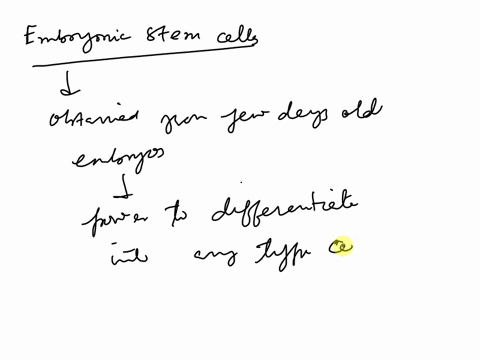 Embryonic stem cells
obtained from few days old
embryos
power to differentiate
into any type ce